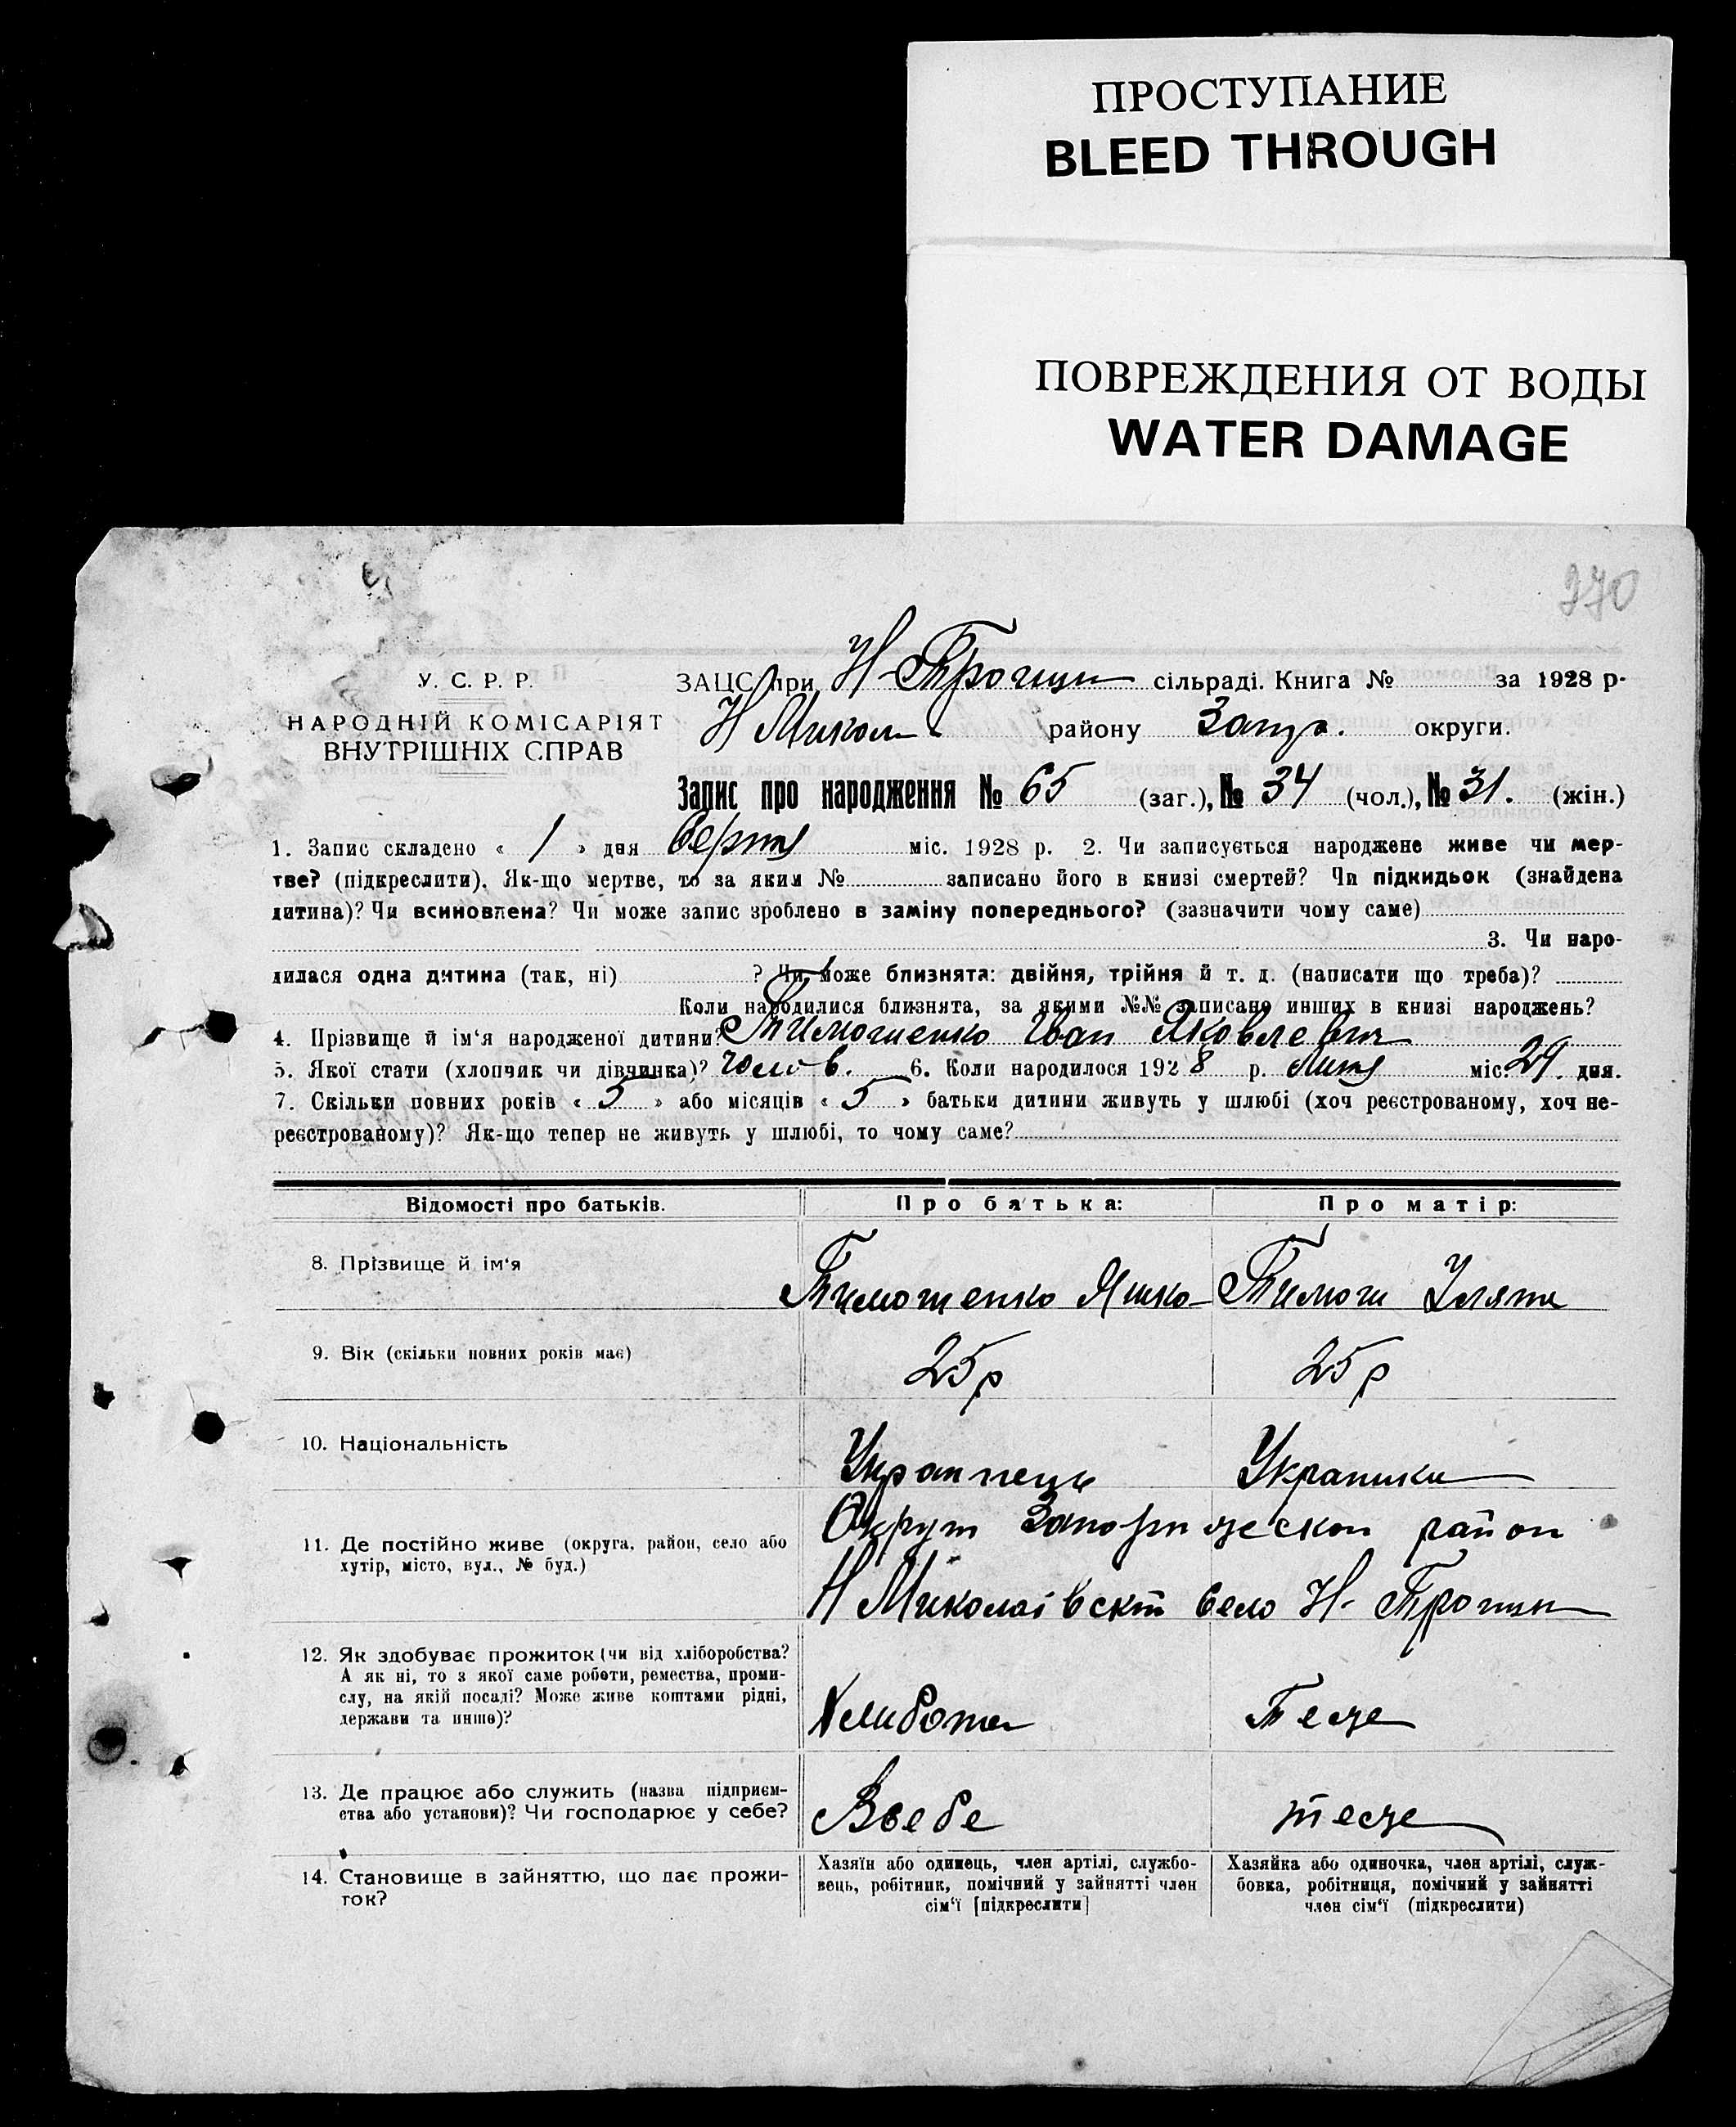 ПРОСТУПАНИЕ
BLEED THROUGH
ПОВРЕЖДЕНИЯ ОТ ВОДЫ
WATER DAMAGE
У. С. Р. Р.
НАРОДНІЙ КОМІСАРІЯТ
ВНУТРІШНІХ СПРАВ
ЗАЦС при Н-Трощи сільраді. Книга № за 1928 р.
Н Микол району Запр. округи.
Запис про народження № 65 (заг.), № 34 (чол.), № 31. (жін.)
1. Запис складено « 1 » дня серпня міс. 1928 р. 2. Чи записується народжене живе чи мер-
тве? (підкреслити). Як-що мертве, то за яким № записано його в книзі смертей? Чи підкидьок (знайдена
дитина)? Чи всиновлена? Чи може запис зроблено в заміну попереднього? (зазначити чому саме)
3. Чи наро-
дилася одна дитина (так, ні) ? Чи може близнята: двійня, трійня й т. д. (написати що треба)?
Коли народилися близнята, за якими №№ записано инших в книзі народжень?
4. Прізвище й ім'я народженої дитини? Тимошенко Иван Яковлевич
5. Якої стати (хлопчик чи дівчинка)? чолов. 6. Коли народилося 1928 р. липня міс. 29. дня.
7. Скільки повних років « 5 » або місяців « 5 » батьки дитини живуть у шлюбі (хоч реєстрованому, хоч не-
реєстрованому)? Як-що тепер не живуть у шлюбі, то чому саме?
Відомості про батьків. Про батька: Про матір:
8. Прізвище й ім'я Тимошенко Яшко Тимош Уляна
9. Вік (скільки повних років має) 25р 25р
10. Національність Украинець Украинка
Округ Запорижеской район
11. Де постійно живе (округа, район, село або
хутір, місто, вул., № буд.)
Н Миколаівскій село Н-Трощи
12. Як здобуває прожиток (чи від хліборобства?
А як ні, то з якої саме роботи, ремества, проми-
слу, на якій посаді? Може живе коштами рідні,
держави та инше)?
Хлибопа Теже
13. Де працює або служить (назва підприєм-
ства або установи)? Чи господарює у себе?
Всебе теже
14. Становище в зайняттю, що дає прожи-
ток?
Хазяїн або одинець, член артілі, службо-
вець, робітник, помічний у зайнятті член
сім'ї [підкреслити]
Хазяйка або одиночка, член артілі, служ-
бовка, робітниця, помічний у зайнятті
член сім'ї (підкреслити)